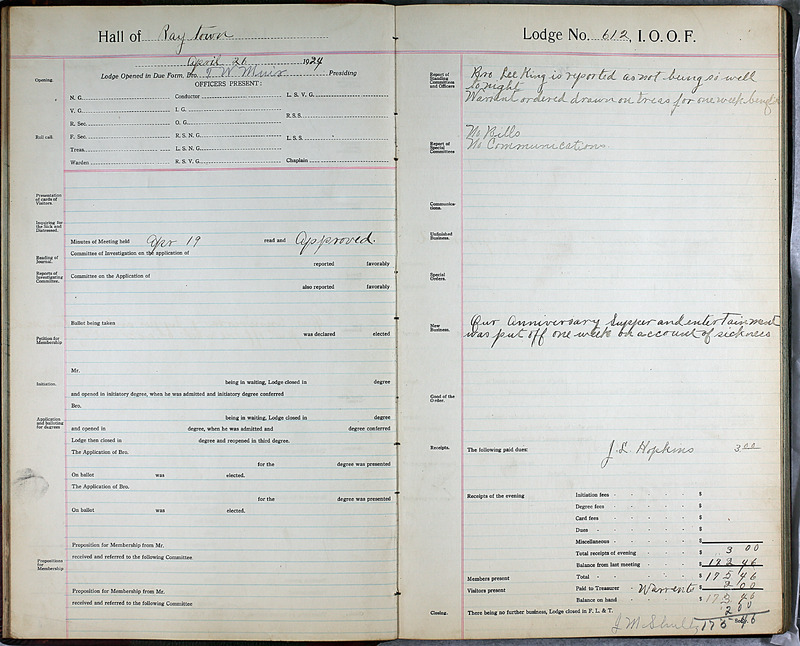 Hall of Raytown
April 26 1924
Lodge Opened in Due Form, Bro. T W Muir Presiding
OFFICERS PRESENT:
Opening.
N. G. Conductor L. S. V. G.
V. G. I. G.
R. Sec. O. G. R.S.S.
Roll call.
F. Sec. R. S. N. G. L. S. S.
Treas. L. S. N. G.
Warden R. S. V. G. Chaplain
Presentation of cards of Visitors.
Inquiring for the Sick and Distressed.
Minutes of Meeting held Apr 19 read and Approved.
Reading of Journal.
Committee of Investigation on the application of
reported favorably
Reports of Investigating Committee.
Committee on the Application of
also reported favorably
Ballot being taken
was declared elected
Petition for Membership
Mr.
Initiation.
being in waiting, Lodge closed in degree
and opened in initiatory degree, when he was admitted and initiatory degree conferred
Bro.
Application and balloting for degrees
being in waiting, Lodge closed in degree
and opened in degree, when he was admitted and degree conferred
Lodge then closed in degree and reopened in third degree.
The Application of Bro.
for the degree was presented
On ballot was elected.
The Application of Bro.
for the degree was presented
On ballot was elected.
Proposition for Membership from Mr.
received and referred to the following Committee.
Propositions for Membership
Proposition for Membership from Mr.
received and referred to the following Committee
Lodge No. 612, I. O. O. F.
Report of Standing Committees and Officers
Bro Lee King is reported as not being so well
tonight
Warrant ordered drawn on treas for one week benefit
No Bills
Report of Special Committees
No Communications
Communications.
Unfinished Business.
Special Orders.
New Business.
Our Anniversary Supper and entertainment
was put off one week on account of sickness
Good of the Order.
Receipts.
The following paid dues: J. L. Hopkins 3 00
Receipts of the evening Initiation fees $
Degree fees $
Card fees $
Dues $
Miscellaneous $
Total receipts of evening $ 3 00
Balance from last meeting $ 172 46
Members present Total $ 175 46
Visitors present Paid to Treasurer Warrents $ 2 00
Balance on hand $ 175 46
Closing. There being no further business, Lodge closed in F. L. & T. 2 00